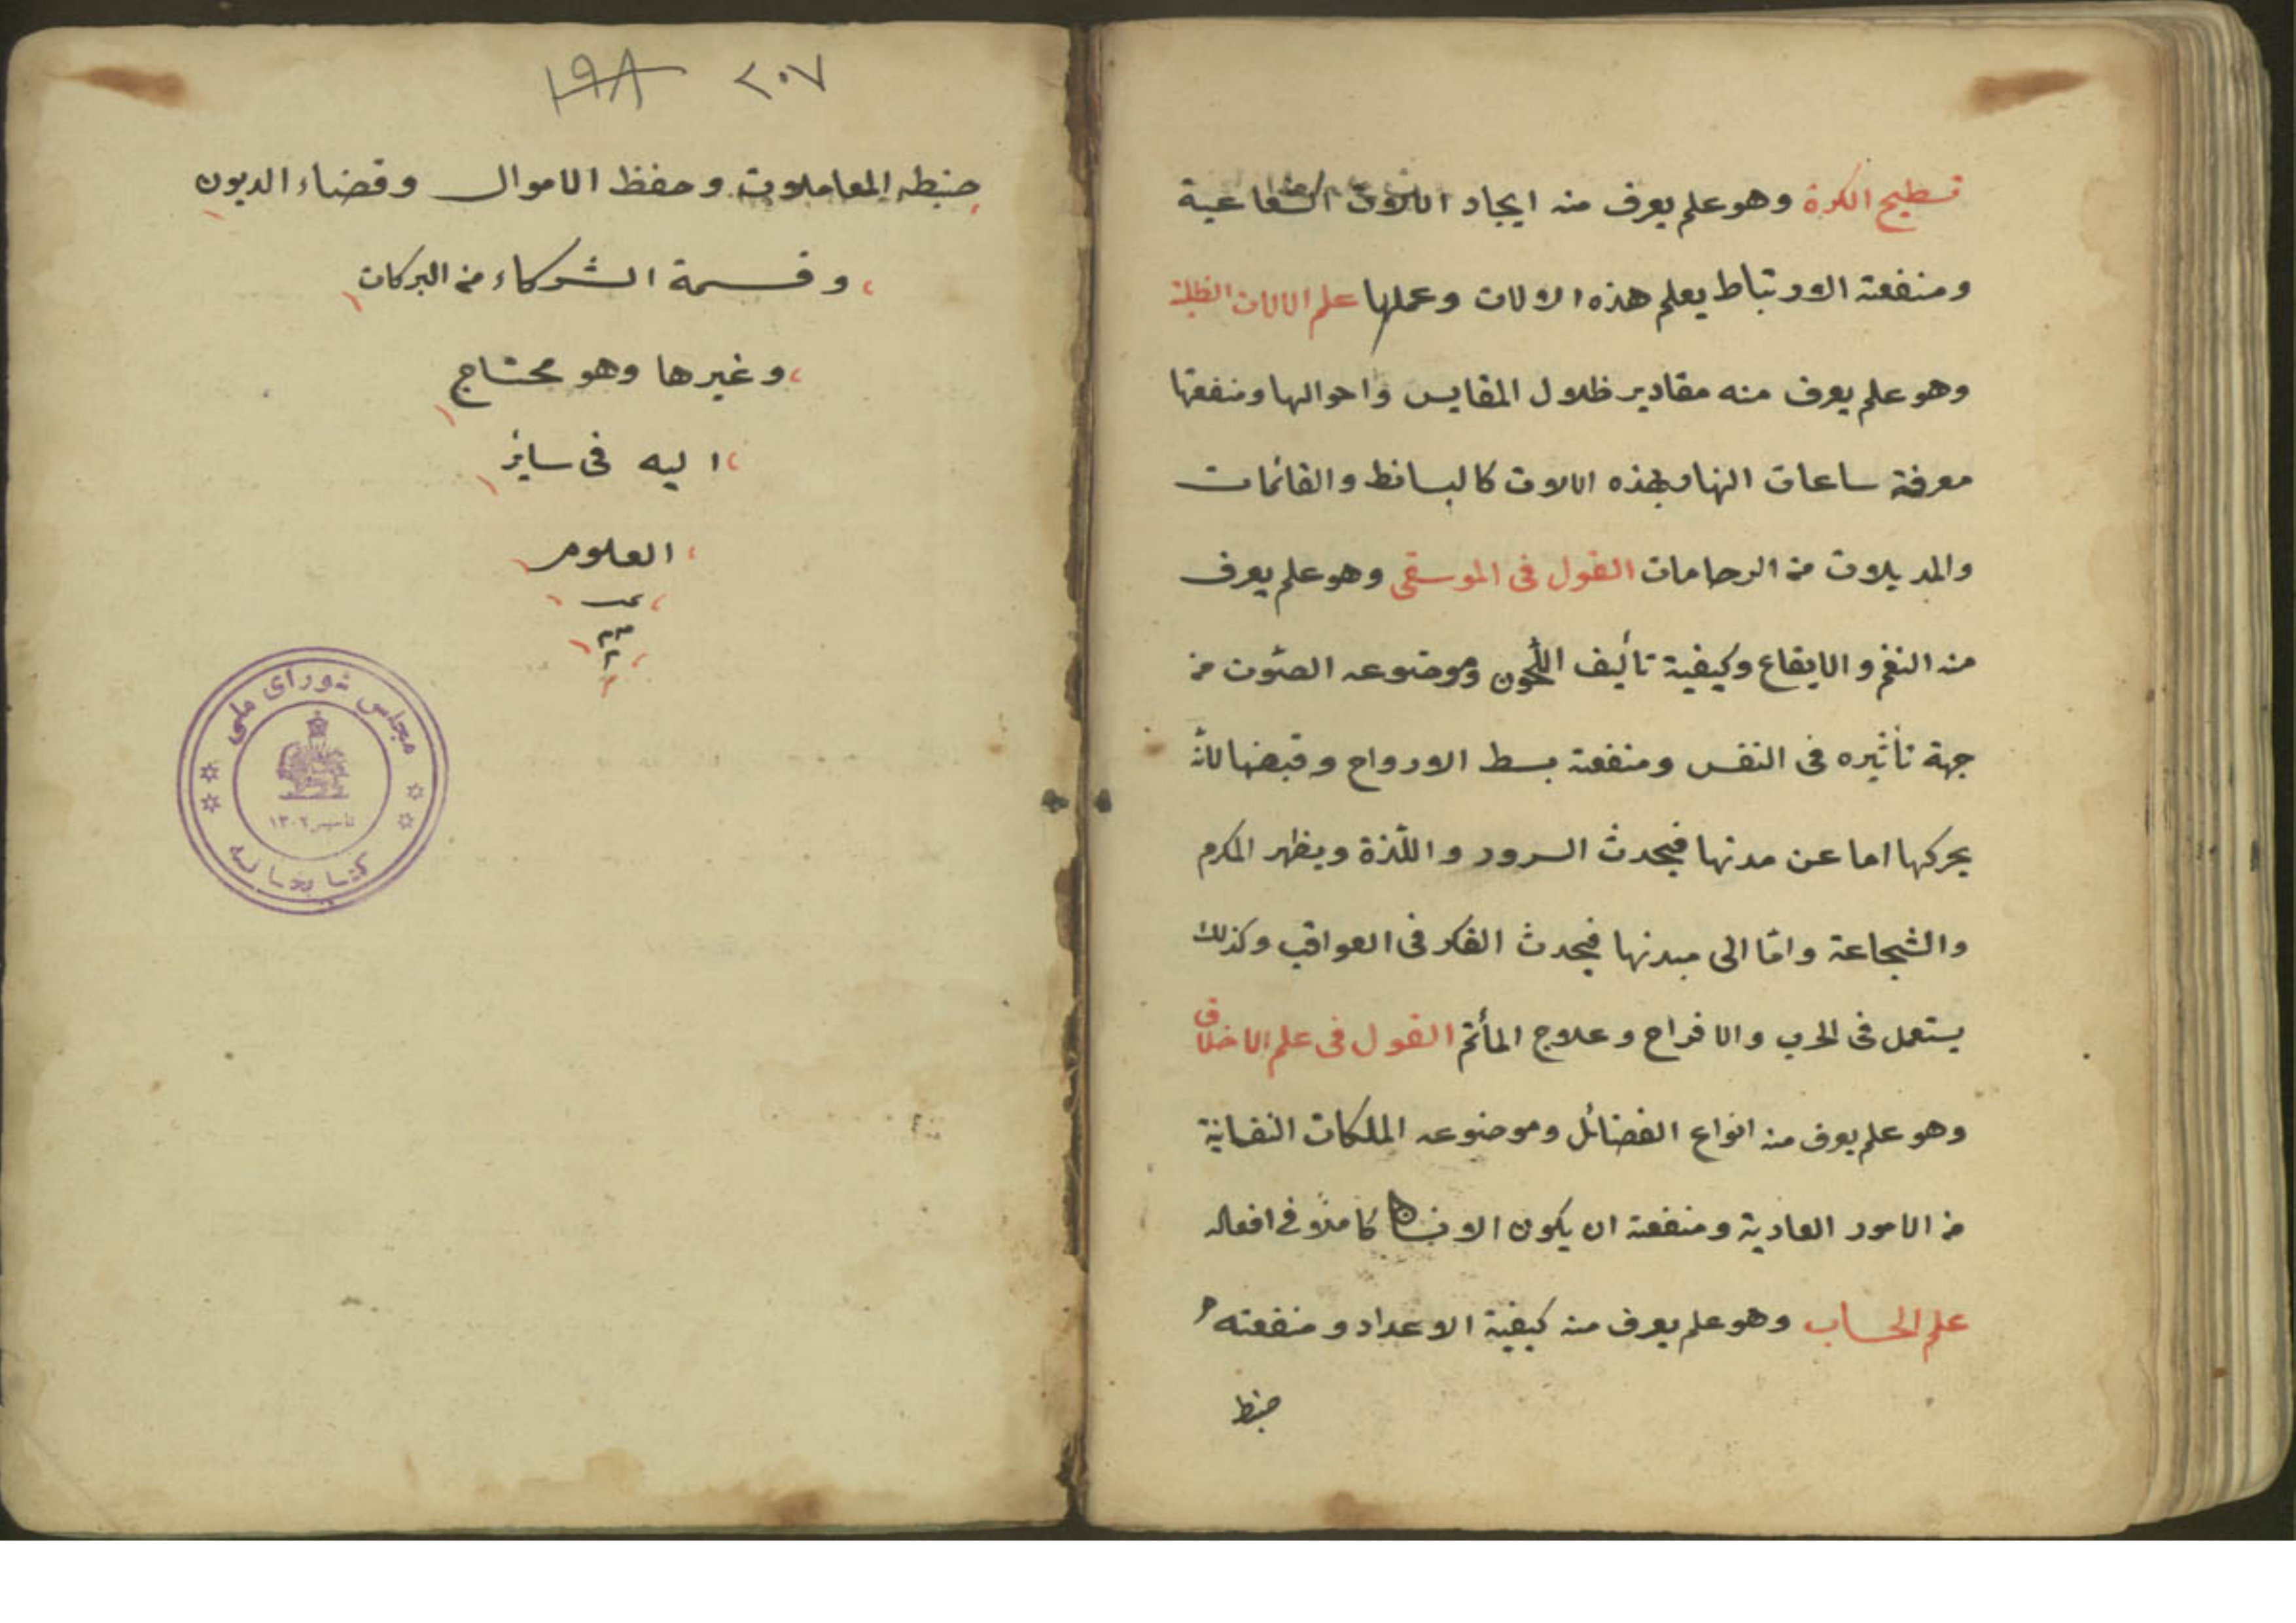 تسطيح الكرة وهو علم يعرف منه ايجاد الالات الشعاعية
ومنفعته الارتباط بعلم هذه الالات وعملها علم الالات الظلية
وهو علم يعرف منه مقادير ظلال المقايس واحوالها ومنفعتها
معرفة ساعات النهار بهذه الالات كالبسائط والقائمات
والمديلات من الرخامات القول فى الموسقى وهو علم يعرف
منه النغم والايقاع وكيفية تأليف اللحون وموضوعه الصوت من
جهة تأثيره فى النفس ومنفعته بسط الارواح وقبضها لانه
يحركها اما عن مدنها فيحدث السرور واللذة ويظهر الكرم
والشجاعة واما الى مبدئها فيحدث الفكر فى العواقب وكذلك
يستعمل فى الحرب والافراح وعلاج المأتم القول فى علم الاخلاق
وهو علم يعرف منه انواع الفضائل وموضوعه الملكات النفسانية
من الامور العادية ومنفعته ان يكون الانسان كاملا فى افعاله
علم الحساب وهو علم يعرف منه كيفية الاعداد ومنفعته
ضبط
٢٠٧ ١٩٨
ضبطه المعاملات وحفظ الاموال وقضاء الديون
وقسمة الشركاء من البركات
وغيرها وهو محتاج
اليه فى سائر
العلوم
مجلس شورای ملی
تأسیس ١٣٠٢
کتابخانه